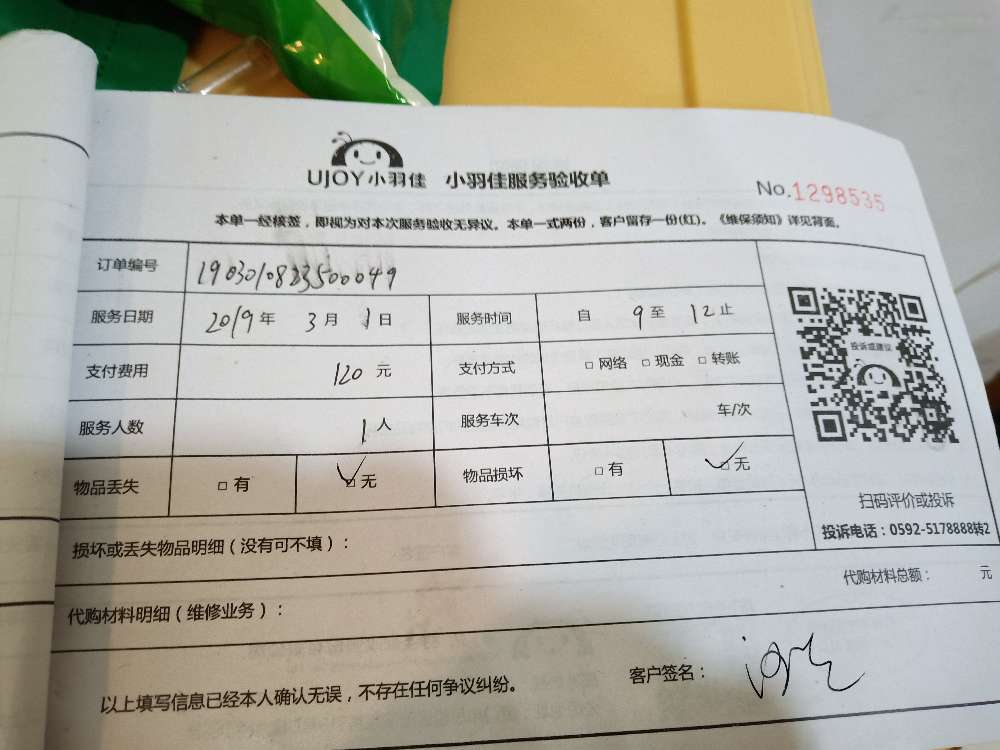 UJOY小羽佳 小羽佳服务验收单
No.1298535
本单一经核签，即视为对本次服务验收无异议。本单一式两份，客户留存一份(红)。《维保须知》详见背面。
订单编号 1903010823500049
服务日期 2019年 3月 1日 服务时间 自 9至 12止
支付费用 120元 支付方式 □网络 □现金 □转账
投诉或建议
服务人数 1人 服务车次 车/次
物品丢失 □有 □无 物品损坏 □有 □无
扫码评价或投诉
投诉电话：0592-5178888转2
损坏或丢失物品明细（没有可不填）：
代购材料总额： 元
代购材料明细（维修业务）：
以上填写信息已经本人确认无误，不存在任何争议纠纷。
客户签名：